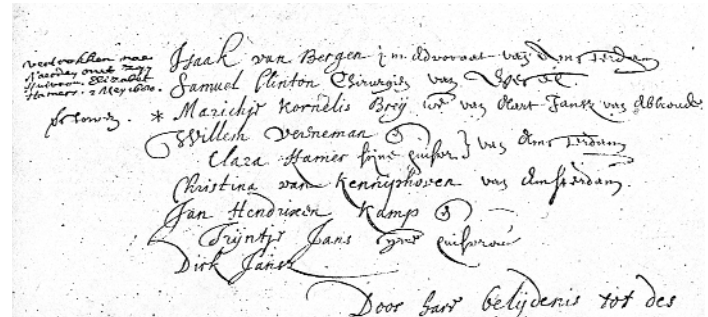 vertrokken nae
Naerden met zijn
huisvrou Elizabet
Hamers. 2 Mey 1680.
Isaak van Bergen j m Advocaat van Amsterdam
Samuel Clinton Chirurgijn van
* Marichje Kornelis Breij we van Aart Jansz van Abkoude
Willem Venneman &
Clara Hamer sijne huisvr } van Amsterdam
Christina van Kennip hoven van Amsterdam.
Jan Hendrixen Kamp &
Trijntje Jans sijne huisvrou
Dirk Jansz
Door haer belijdenis tot des